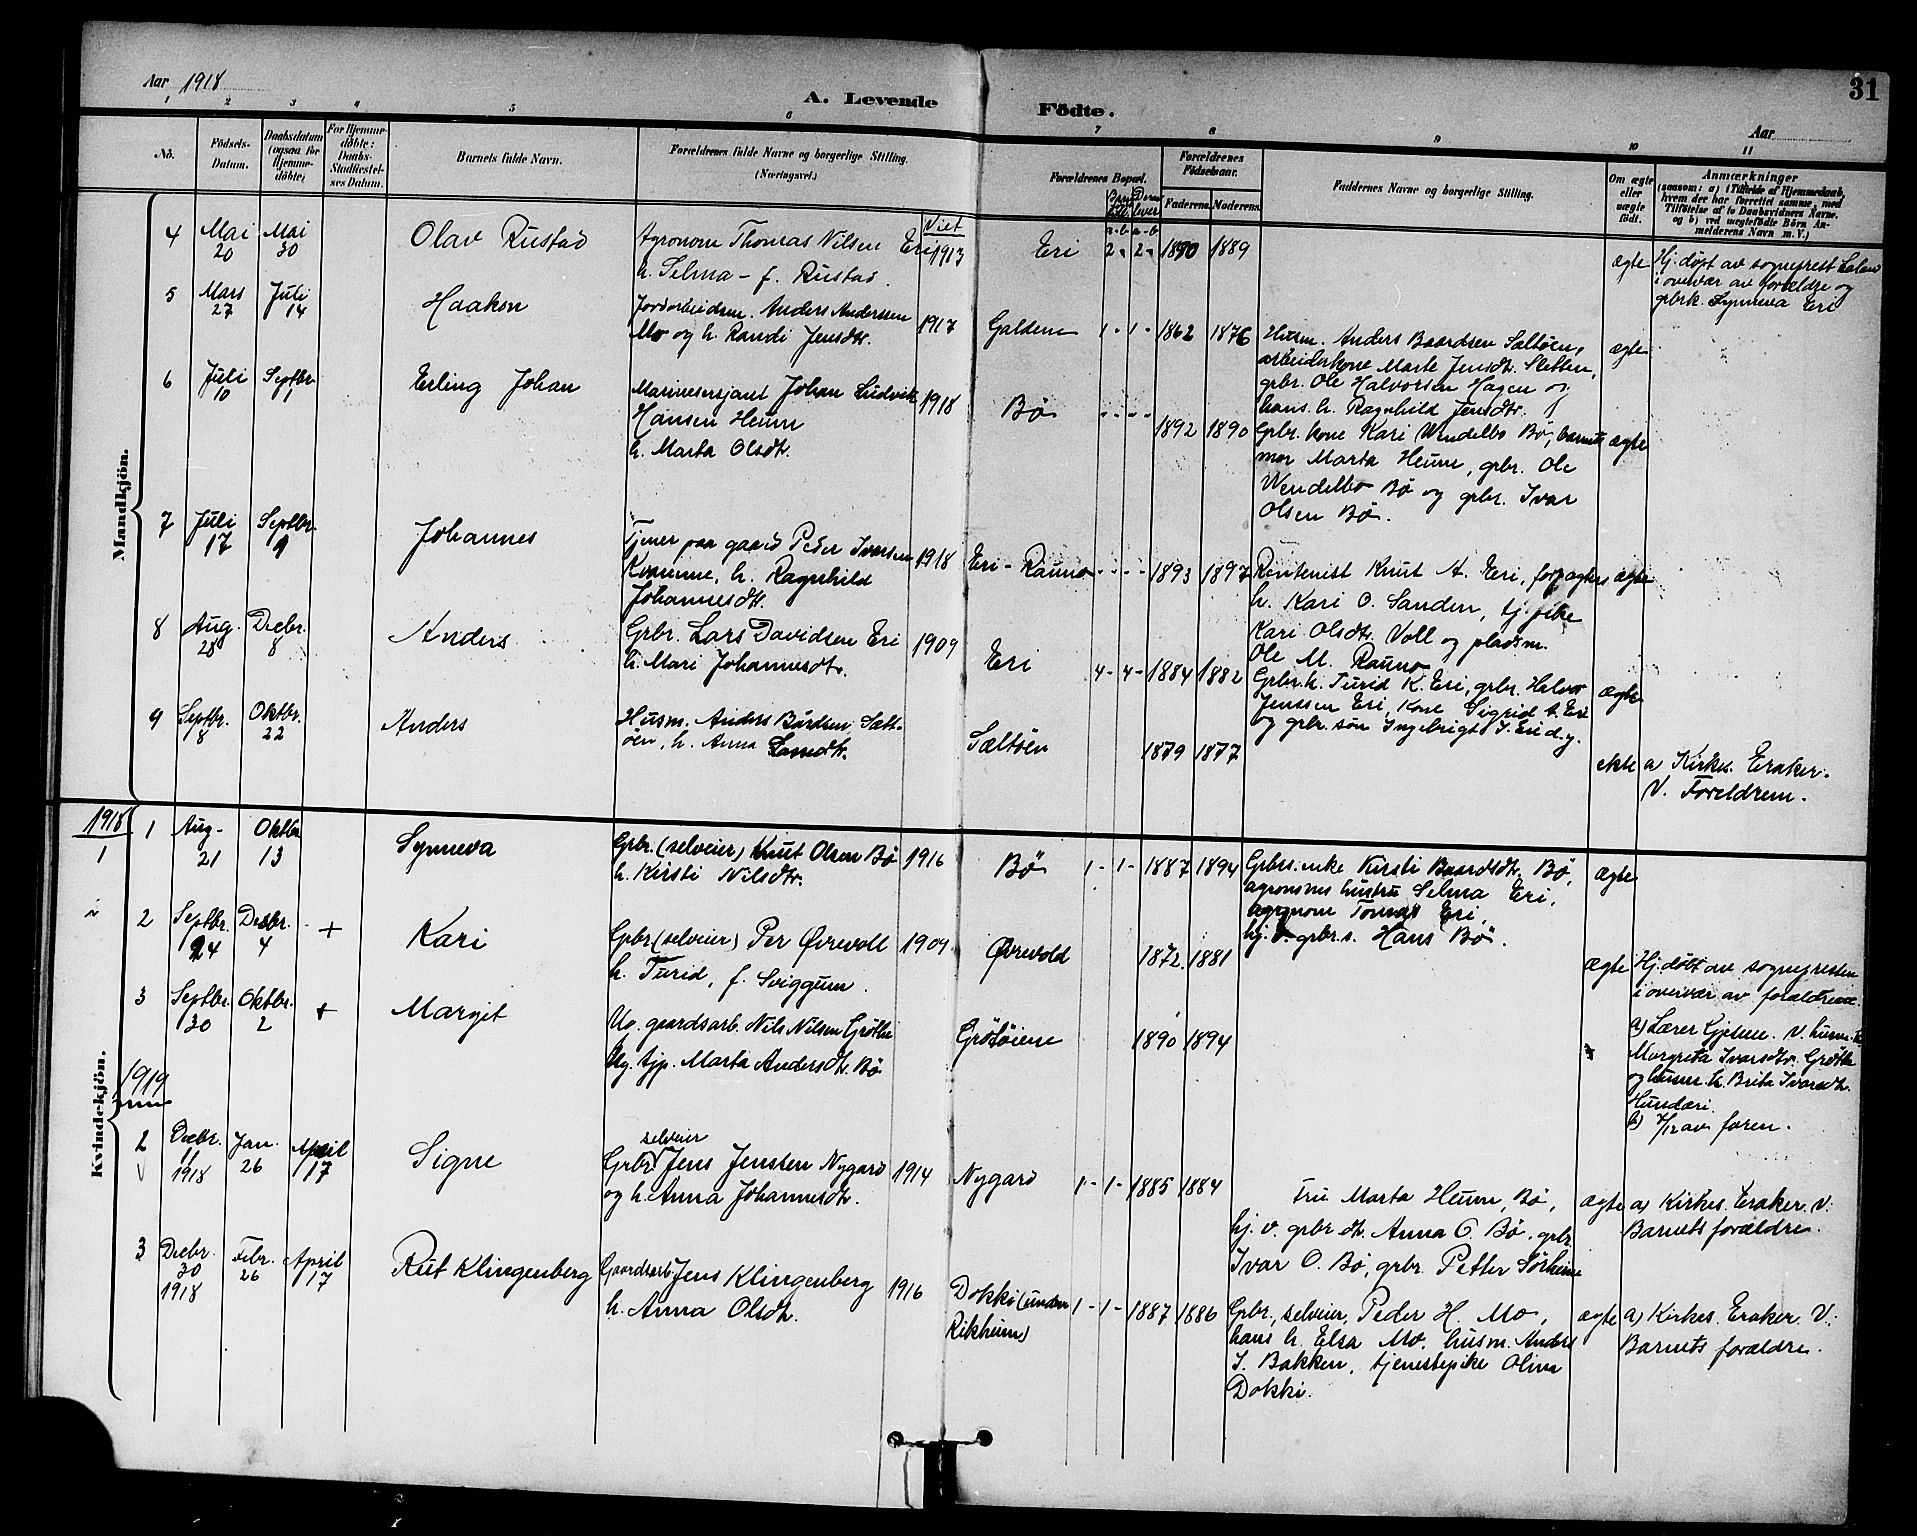 Aar 1918
A. Levende Födte.
Aar
31
1 2 3 4 5 6 7 8 9 10 11
No.
Födsels-Datum.
Daabsdatum (ogsaa for Hjemme-döbte)
For Hjemme-döbte: Daabs-Stadfæstel-ses Datum.
Barnets fulde Navn.
Forældrenes fulde Navne og borgerlige Stilling.
(Næringsvei.)
Viet
Forældrenes Bopæl.
Forældrenes Födselsaar.
Faderens. Moderens.
Faddernes Navne og borgerlige Stilling.
Om ægte eller uægte födt.
Anmærkninger
(saasom: a) i Tilfælde af Hjemmedaab, hvem der har forrettet samme, med Tilföielse af to Daabsvidners Navne, og b) ved uægtefödte Börn An-melderens Navn m. V.)
Mandkjön.
4 Mai 20 Mai 30 Olav Rustad
Agronom Thomas Nilsen Eri 1913
h. Selma - f. Rustad.
Eri 2 - 2 - 1890 1889 ægte
Hj. døpt av sogneprest
i overvær av forældre og
grbrk. Synneva Eri
5 Mars 27 Juli 14 Haakon
Jordarbeidsm. Anders Anderssen
Mo og h. Randi Jensdtr. 1917
Galdene 1 - 1 - 1862 1876
Husm. Anders Baardsen Saltøen,
arbeiderkone Marte Jensdtr. Sletten,
grbr. Ole Halvorsen Hagen og
hans h. Ragnhild Jensdtr.
ægte
6 Juli 10 Septbr. 1 Erling Johan
Marinesersjant Johan Ludvik
Hansen Heum
h. Marta Olsdtr.
1918 Bø 1892 1890
Grbr. kone Kari Wendelbo Bø, barnets
mor Marta Heum, grbr. Ole
Wendelbo Bø og grbr. Ivar
Olsen Bø.
ægte
7 Juli 17 Septbr. 1 Johannes
Tjener paa gaard Peder Ivarsen
Kvamme, h. Ragnhild
Johannesdtr.
1918 Eri - Rauno 1893 1897
Rentenist Knut A. Eri, forpagters
h. Kari O. Sanden, tj. pike
Kari Olsdtr. Voll og pladsm.
Ole M. Rauno
ægte
8 Aug. 28 Decbr. 8 Anders
Grbr. Lars Davidsen Eri
h. Mari Johannesdtr.
1909 Eri 4 - 4 - 1884 1882
Grbr. h. Turid K. Eri, grbr. Halvor
Jenssen Eri, kone Sigrid A. Eri
og grbr. søn Ingebrigt J. Eri d.y.
ægte
9 Septbr. 8 Oktbr. 22 Anders
Husm. Anders Bårdsen Sælt-
øen, h. Anna
Sæltøen 1879 1877
ekte a Kirkes. Eraker.
V. Foreldrem.
Kvindekjön.
1918
1 1 Aug. 21 Oktbr. 13 Synneva
Grbr. (selveier) Knut Olsen Bø
h. Kirsti Nilsdtr.
1916 Bø 1 - 1 - 1887 1894
Grbrs. enke Kirsti Baardsdtr. Bø,
agronomes hustru Selma Eri,
agronom Tomas Eri,
hj. v. grbr. s. Hans Bø.
ægte
2 Septbr. 24 Decbr. 4 + Kari
Grbr. (selveier) Per Øvrevoll
h. Turid, f. Sviggum.
1909 Øvrevold 1872. 1881
ægte Hj. døbt av sognepresten
i overvær av forældrene.
3 Septbr. 30 Oktbr. 2 + Margit
Ug. gaardsarb. Nils Nilsen Grøtø
Ug. tjp. Marta Andersdtr. Bø
Grøtøiene 1890 1894
a) Lærer Gjelme. V. husm.
Margreta Ivarsdtr. Grøtø
og husm. h. Brita Ivarsdtr.
b) av faren.
1919
2 Decbr. 11 1918 Jan. 26 April 17 Signe
selveier
Grbr. Jens Jenssen Nygard
og h. Anna Johannesdtr.
1914 Nygard 1 - 1 - 1885 1884
Fru Marta Heum, Bø,
hj. v. grbr. dtr. Anna O. Bø, grbr.
Ivar O. Bø, grbr. Petter Sørheim
ægte a) Kirkes. Eraker. V:
Barnets forældre.
3 Decbr. 30 1918 Febr. 26 April 17 Rut Klingenberg
Gaardsarb. Jens Klingenberg
h. Anna Olsdtr.
1916 Dokki (under
Rikheim)
1 - 1 - 1887 1886
Grbr., selveier, Peder H. Mo,
hans h. Elsa Mo, husm. Anders
J. Bakken, tjenestepike Olina
Dokki.
ægte a) Kirkes. Eraker. V:
Barnets forældre.